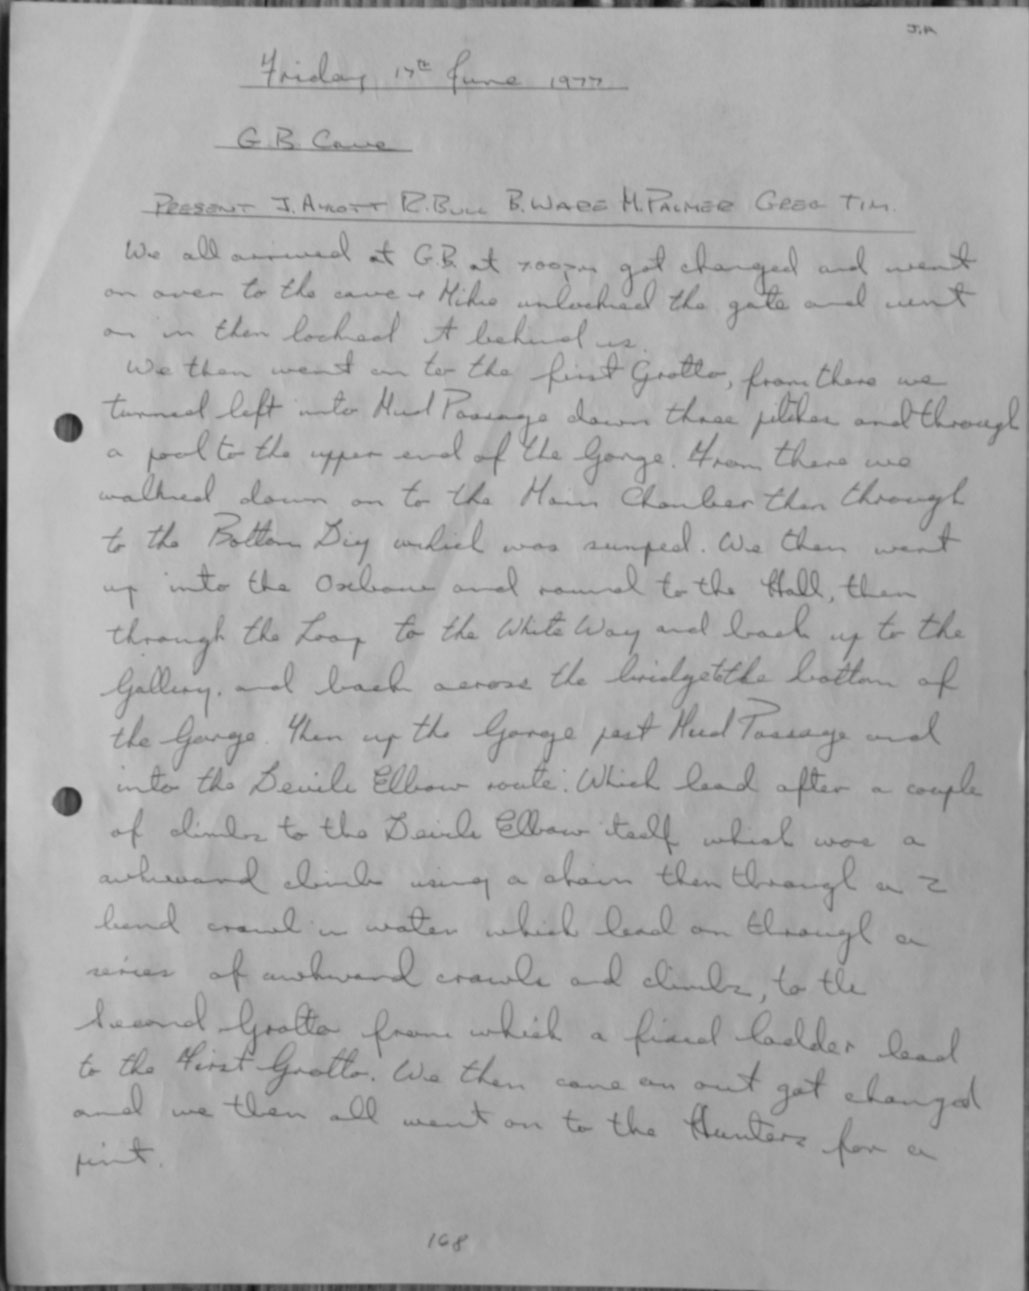 J.A
Friday 17th June 1977
G.B. Cave
PRESENT J. AYLOTT R. BULL B. WARE M. PALMER GREG TIM.
We all arrived at G.B. at 7.00pm got changed and went
on over to the cave & Mike unlocked the gate and went
on in then locked it behind us.
We then went on to the first Grotto, from there we
turned left into Mud Passage down three pitches and through
a pool to the upper end of the Gorge. From there we
walked down on to the Main Chamber then through
to the Bottom Dig which was sumped. We then went
up into the Oxbow and round to the Hall, then
through the Loop to the White Way and back up to the
Gallery. and back across the bridge to the bottom of
the Gorge. Then up the Gorge past Mud Passage and
into the Devils Elbow route. Which lead after a couple
of climbs to the Devils Elbow itself which was a
awkward climb using a chain then through a Z
bend crawl in water which lead on through a
series of awkward crawls and climbs, to the
Second Grotto from which a fixed ladder lead
to the First Grotto. We then came on out got changed
and we then all went on to the Hunters for a
pint.
168